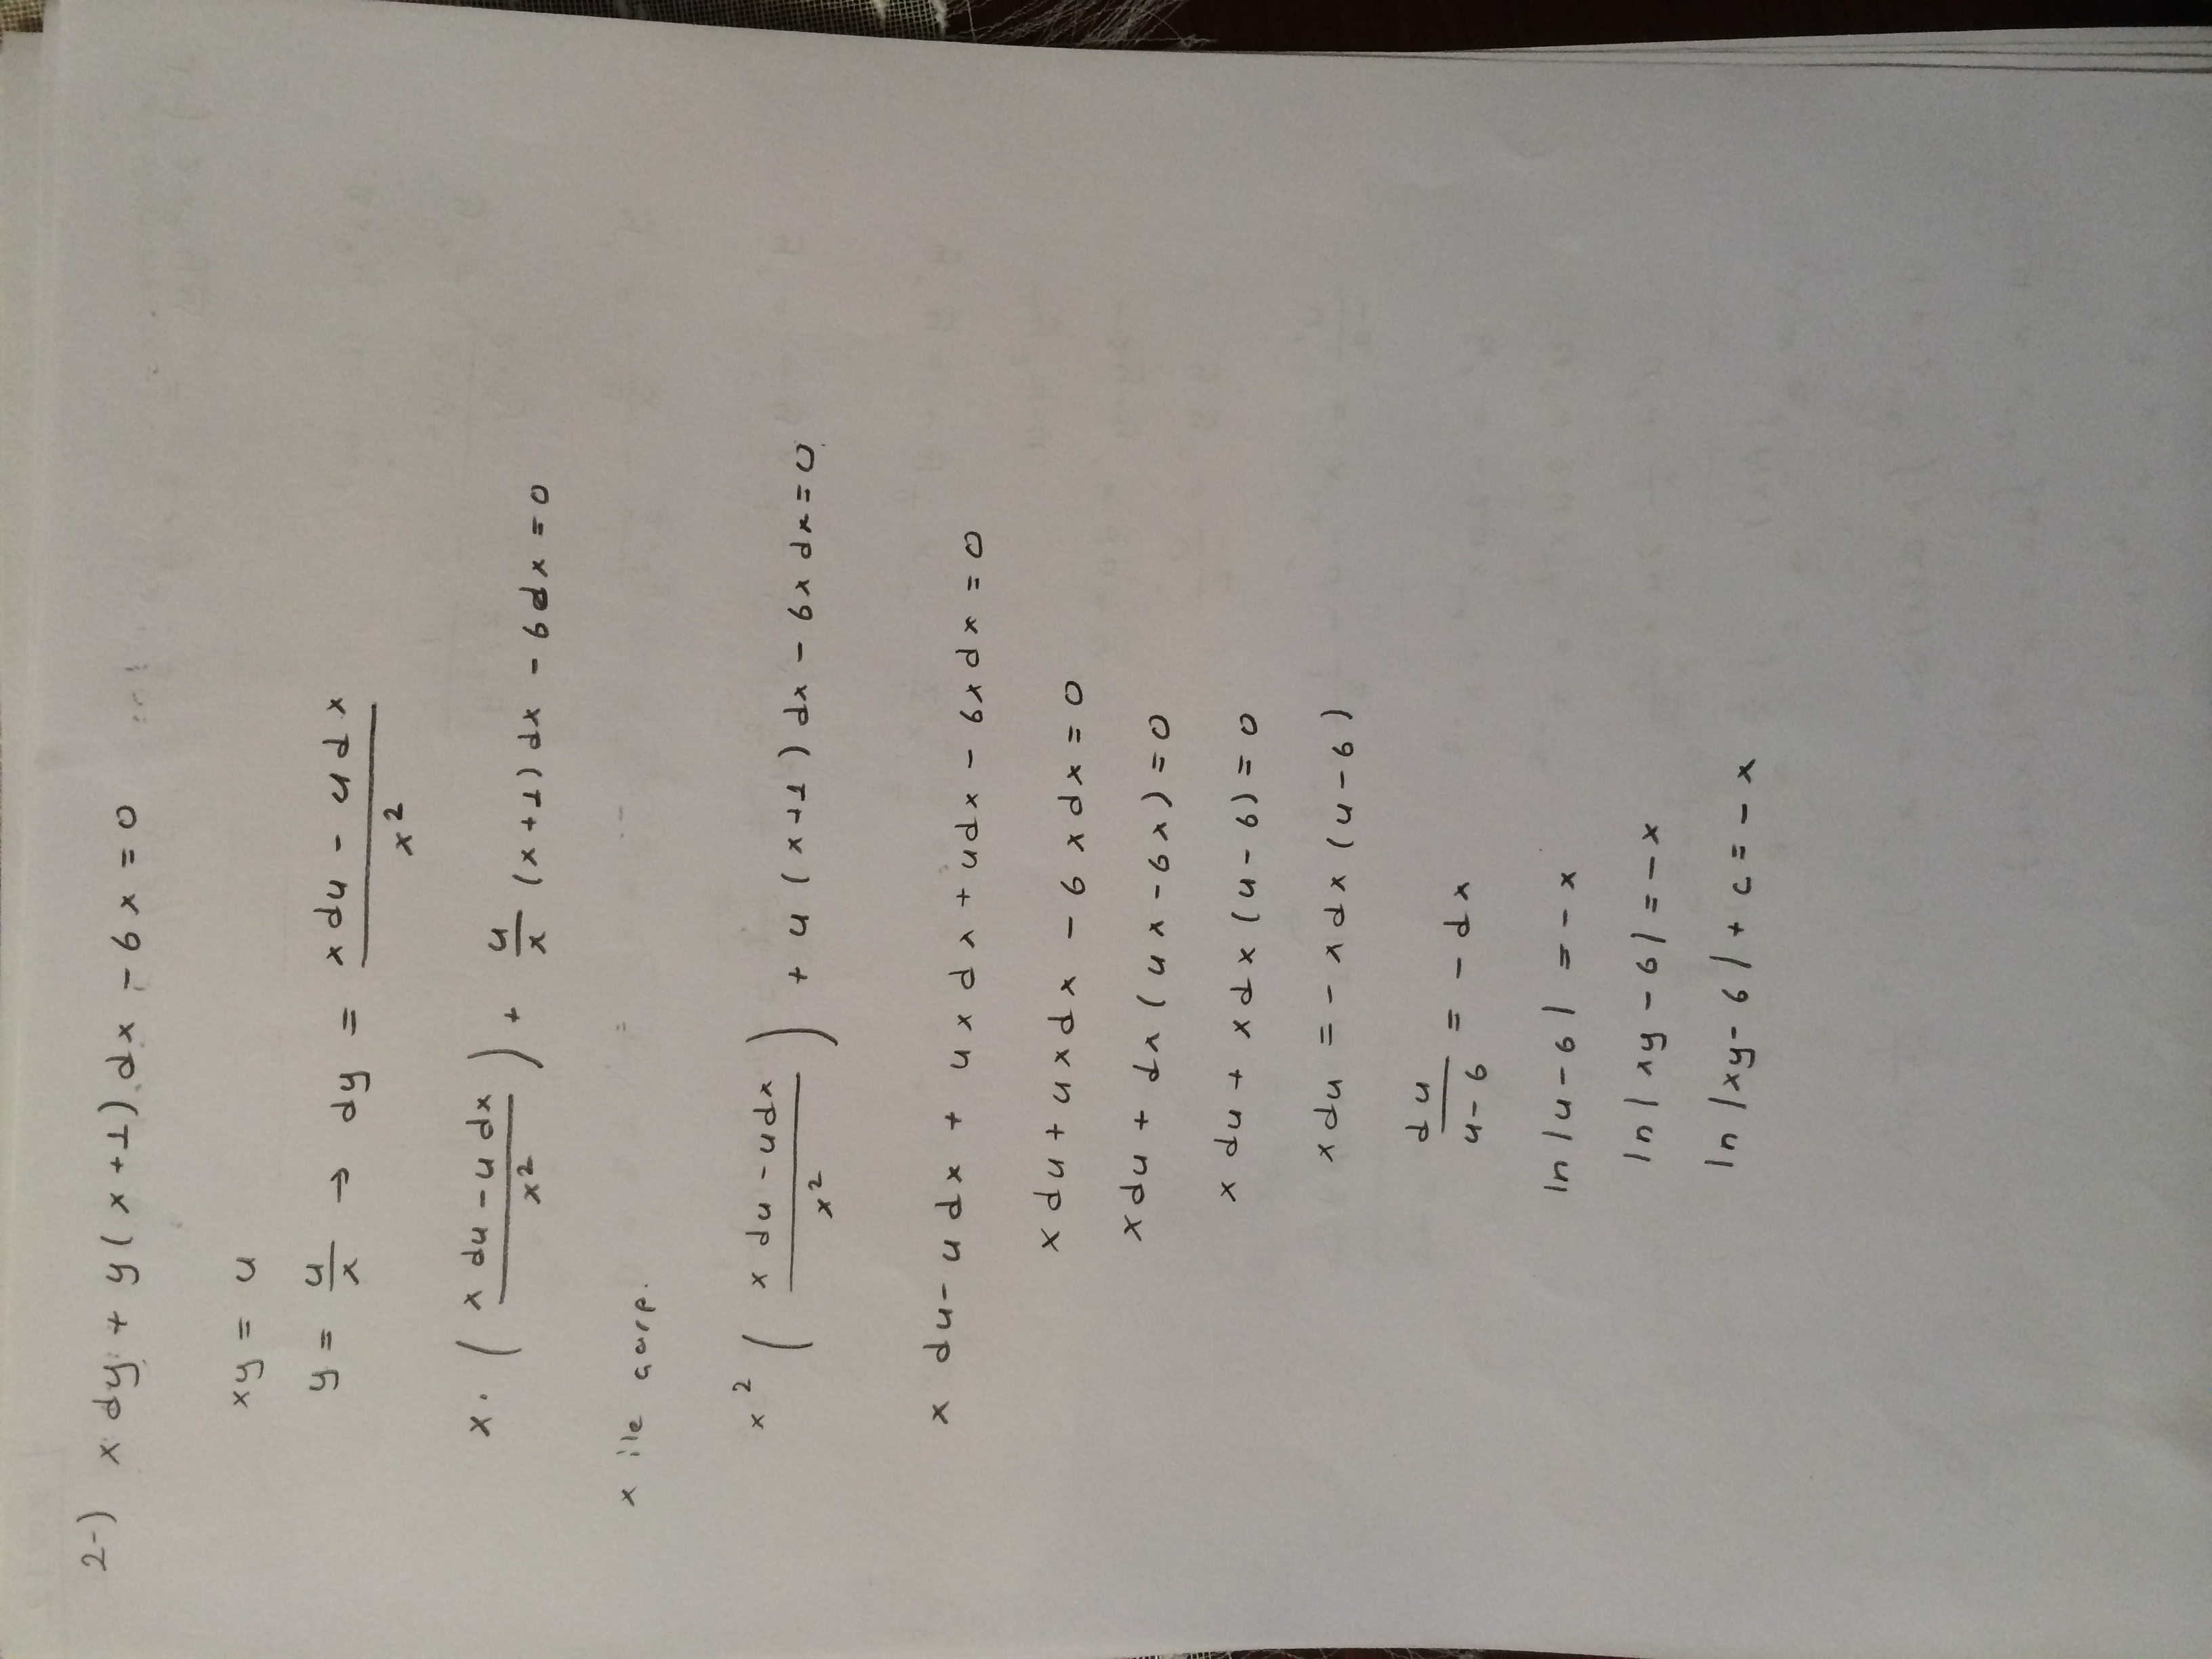 2-) x dy + y ( x + 1 ) dx - 6 x = 0
xy = u
y = u/x → dy = (x du - u dx)/x²
x . ( (x du - u dx)/x² ) + u/x (x + 1) dx - 6 dx = 0
x ile çarp.
x² ( (x du - u dx)/x² ) + u ( x + 1 ) dx - 6x dx = 0
x du - u dx + u x dx + u dx - 6x dx = 0
x du + u x dx - 6 x dx = 0
x du + dx ( u x - 6x ) = 0
x du + x dx ( u - 6 ) = 0
x du = - x dx ( u - 6 )
du/(u - 6) = - dx
ln |u - 6| = - x
ln | xy - 6 | = - x
ln |xy - 6 | + c = - x